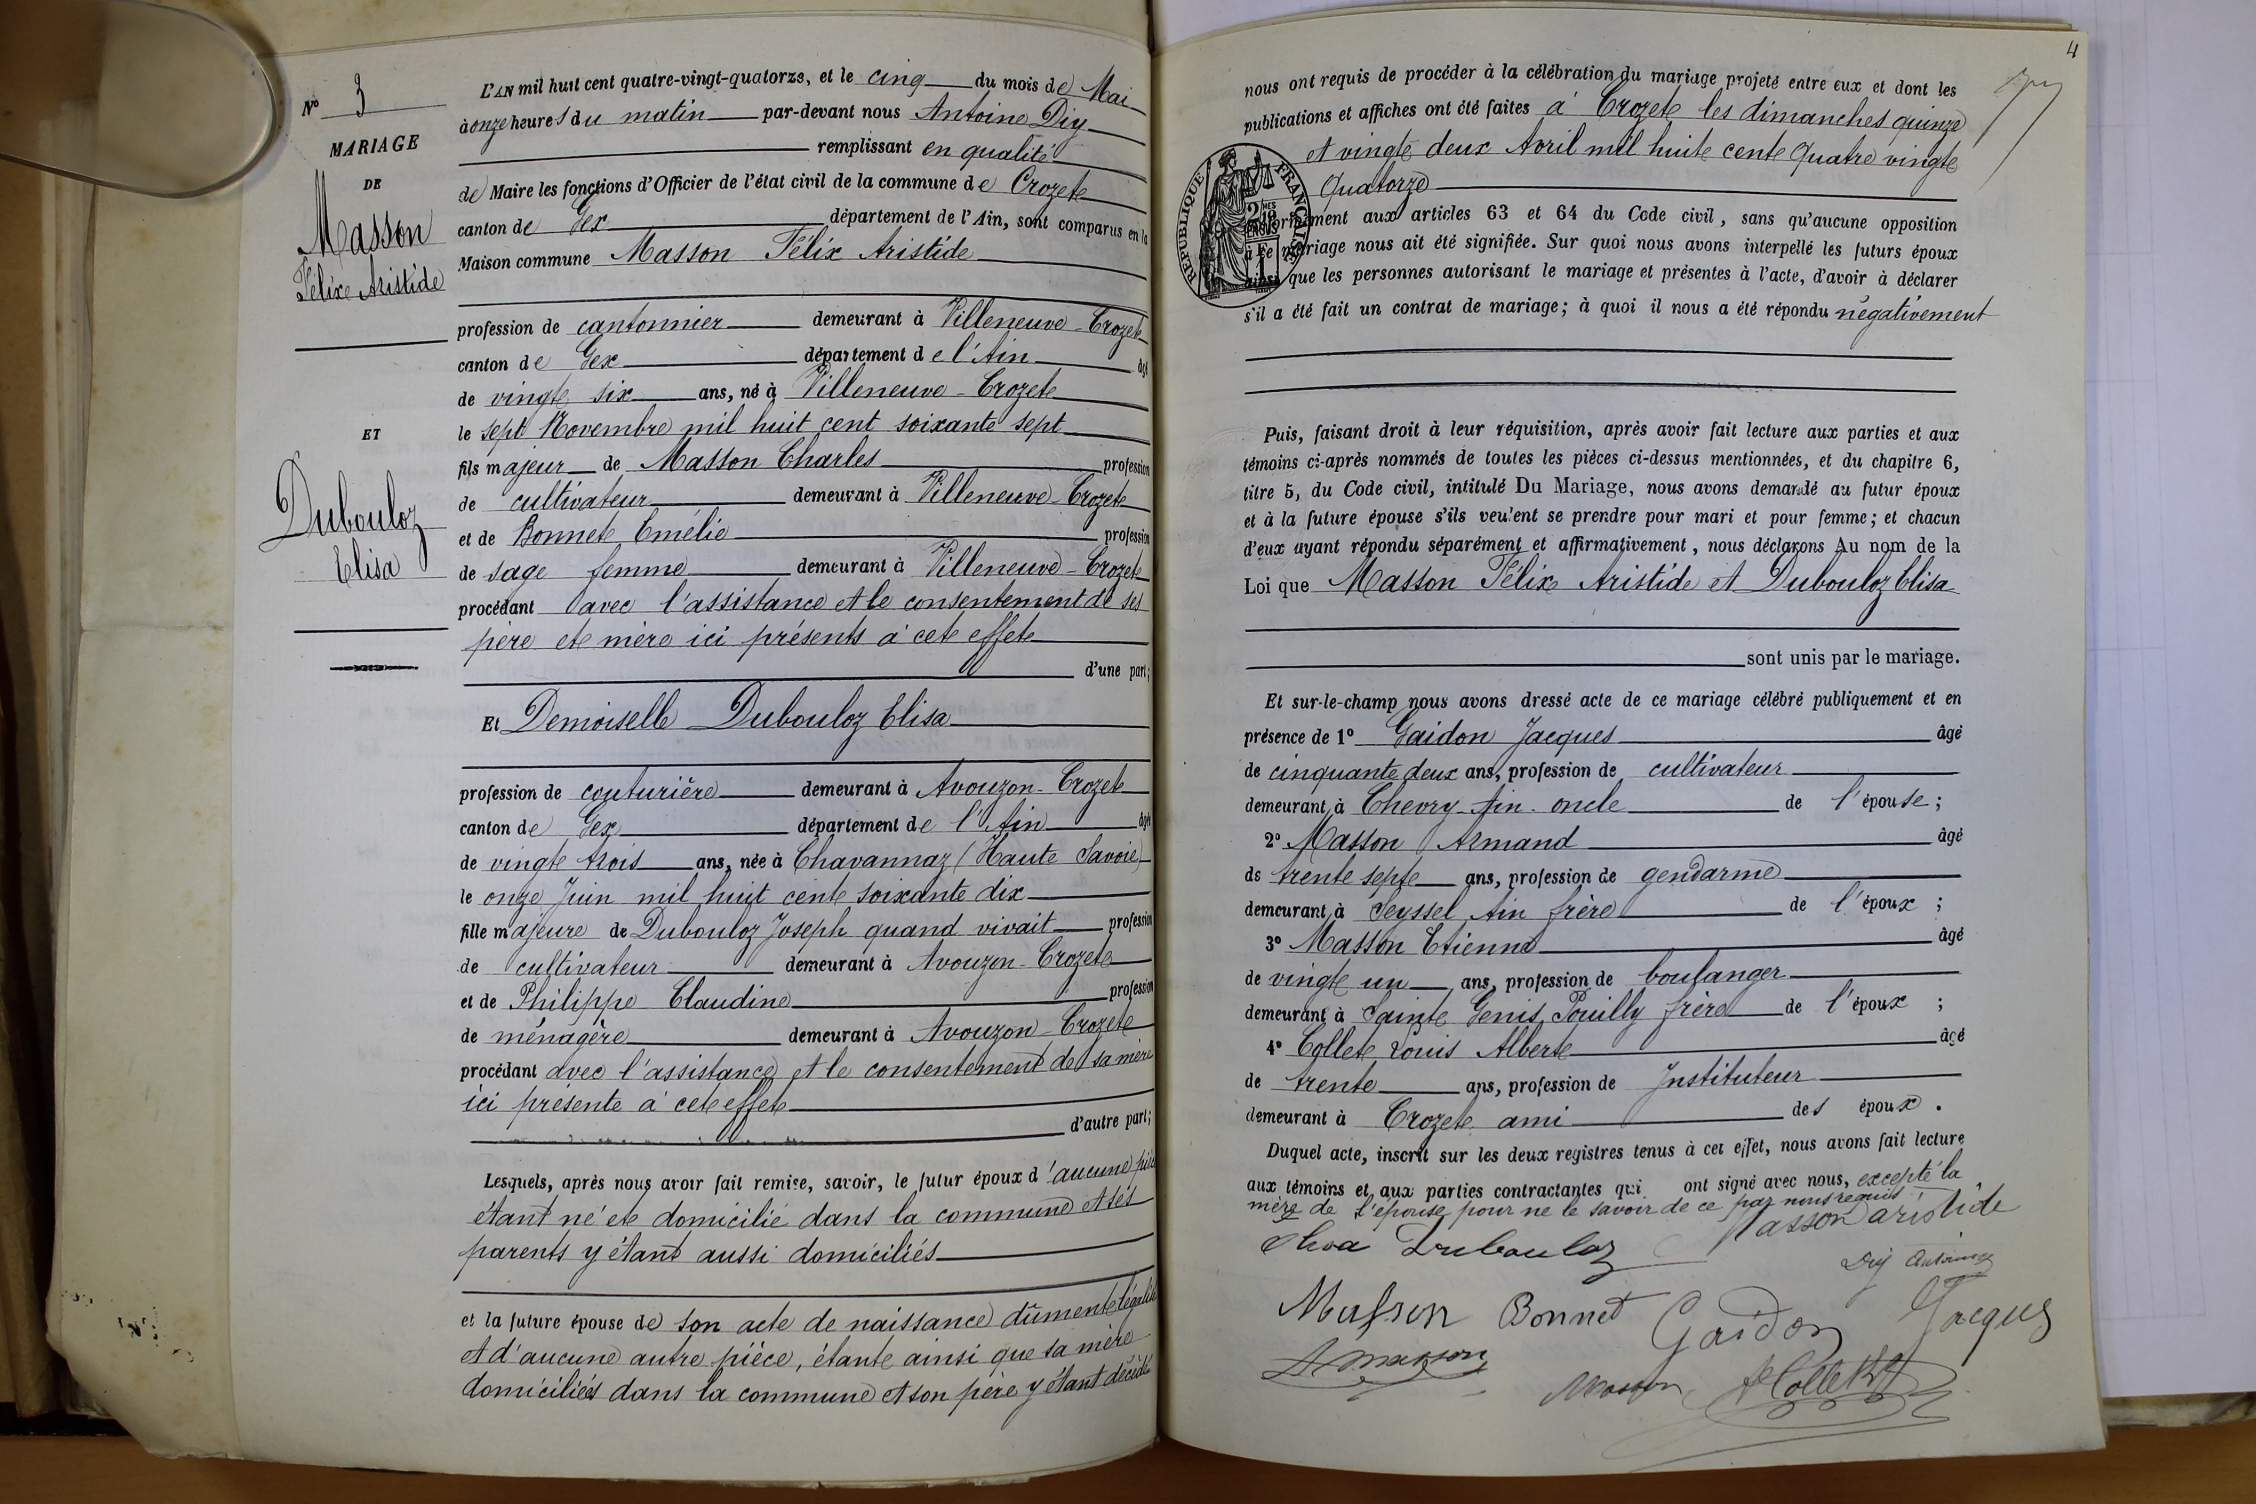 N° 3
MARIAGE
DE
Masson
Félix Aristide
ET
Dubouloz
Elisa
L'AN mil huit cent quatre-vingt-quatorze, et le cinq du mois de Mai
à onze heures du matin par-devant nous Antoine Diy
remplissant en qualité
de Maire les fonctions d'Officier de l'état civil de la commune de Crozet
canton de Gex département de l'Ain, sont comparus en la
Maison commune Masson Félix Aristide
profession de cantonnier demeurant à Villeneuve - Crozet
canton de Gex département de l'Ain âgé
de vingt six ans, né à Villeneuve - Crozet
le sept Novembre mil huit cent soixante sept
fils majeur de Masson Charles profession
de cultivateur demeurant à Villeneuve - Crozet
et de Bonnet Emélie profession
de sage femme demeurant à Villeneuve - Crozet
procédant avec l'assistance et le consentement de ses
père et mère ici présents à cet effet
d'une part;
Et Demoiselle Dubouloz Elisa
profession de couturière demeurant à Avouzon - Crozet
canton de Gex département de l'Ain âgée
de vingt trois ans, née à Chavannaz (Haute Savoie)
le onze Juin mil huit cent soixante dix
fille majeure de Dubouloz Joseph quand vivait profession
de cultivateur demeurant à Avouzon - Crozet
et de Philippe Claudine profession
de ménagère demeurant à Avouzon - Crozet
procédant avec l'assistance et le consentement de sa mère
ici présente à cet effet
d'autre part;
Lesquels, après nous avoir fait remise, savoir, le futur époux d'aucune pièce
étant né et domicilié dans la commune et ses
parents y étant aussi domiciliés
et la future épouse de son acte de naissance dûment légalisé
et d'aucune autre pièce, étant ainsi que sa mère
domiciliés dans la commune et son père y étant décédé
4
nous ont requis de procéder à la célébration du mariage projeté entre eux et dont les
publications et affiches ont été faites à Crozet les dimanches quinze
et vingt deux Avril mil huit cent quatre vingt
quatorze
RÉPUBLIQUE FRANÇAISE
conformément aux articles 63 et 64 du Code civil, sans qu'aucune opposition
à ce mariage nous ait été signifiée. Sur quoi nous avons interpellé les futurs époux
ainsi que les personnes autorisant le mariage et présentes à l'acte, d'avoir à déclarer
s'il a été fait un contrat de mariage; à quoi il nous a été répondu négativement
Puis, faisant droit à leur réquisition, après avoir fait lecture aux parties et aux
témoins ci-après nommés de toutes les pièces ci-dessus mentionnées, et du chapitre 6,
titre 5, du Code civil, intitulé Du Mariage, nous avons demandé au futur époux
et à la future épouse s'ils veulent se prendre pour mari et pour femme; et chacun
d'eux ayant répondu séparément et affirmativement, nous déclarons Au nom de la
Loi que Masson Félix Aristide et Dubouloz Elisa
sont unis par le mariage.
Et sur-le-champ nous avons dressé acte de ce mariage célébré publiquement et en
présence de 1° Gaidon Jacques âgé
de cinquante deux ans, profession de cultivateur
demeurant à Chevry Ain oncle de l'épouse;
2° Masson Armand âgé
de trente sept ans, profession de gendarme
demeurant à Seyssel Ain frère de l'époux;
3° Masson Etienne âgé
de vingt un ans, profession de boulanger
demeurant à Saint Genis Pouilly frère de l'époux;
4° Collet Louis Albert âgé
de trente ans, profession de Instituteur
demeurant à Crozet ami des époux.
Duquel acte, inscrit sur les deux registres tenus à cet effet, nous avons fait lecture
aux témoins et aux parties contractantes qui ont signé avec nous, excepté la
mère de l'épouse pour ne le savoir de ce par nous requis
Masson aristide
Elisa Dubouloz
Diy Antoine
Masson Bonnet Gaidon Jacques
A masson
Masson A Collet